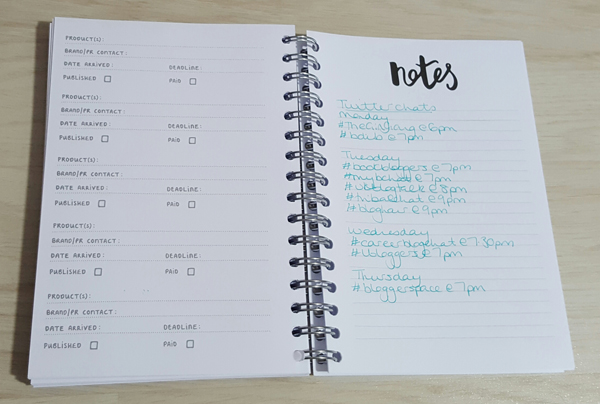 PRODUCT(S):
BRAND/PR CONTACT:
DATE ARRIVED: DEADLINE:
PUBLISHED PAID
PRODUCT(S):
BRAND/PR CONTACT:
DATE ARRIVED: DEADLINE:
PUBLISHED PAID
PRODUCT(S):
BRAND/PR CONTACT:
DATE ARRIVED: DEADLINE:
PUBLISHED PAID
PRODUCT(S):
BRAND/PR CONTACT:
DATE ARRIVED: DEADLINE:
PUBLISHED PAID
PRODUCT(S):
BRAND/PR CONTACT:
DATE ARRIVED: DEADLINE:
PUBLISHED PAID
notes
Twitter chats
Monday
#TheGirlGang @ 6pm
@ 7pm
Tuesday
#bookbloggers @ 7pm
@ 7pm
#ukblogtalk @ 8pm
@ 9pm
#bloghour @ 9pm
Wednesday
#careerblogchat @ 7:30pm
@ 7pm
Thursday
#bloggerspace @ 7pm